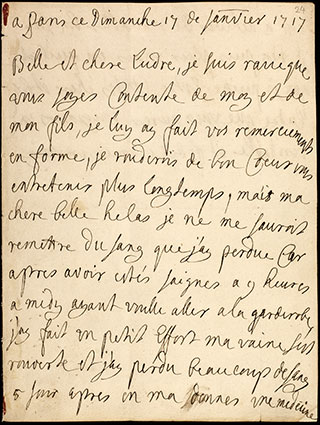 24
a Paris ce Dimanche 17 de Janvier 1717
Belle et chere Ludre, je suis ravie que
vous soyes Contente de moy et de
mon fils, je luy ay fait vos remerciements
en forme, je voudrois de bon Coeur vous
entretenir plus Longtemps, mais ma
chere belle helas je ne me saurois
remettre du sang que j'ay perdue Car
aptres avoir estés saignes a 9 heures
a midy ayant voulle aller a la garderobe
j'ay fait un petit Effort ma vaine sest
rouverte et j'ay perdu beaucoup de sang
5 jour apres on ma donnes une medecine